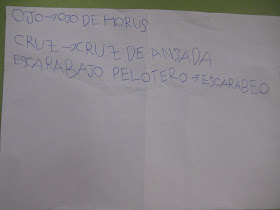 OJO → OJO DE HORUS
CRUZ → CRUZ DE ANSADA
ESCARABAJO PELOTERO → ESCARABEO